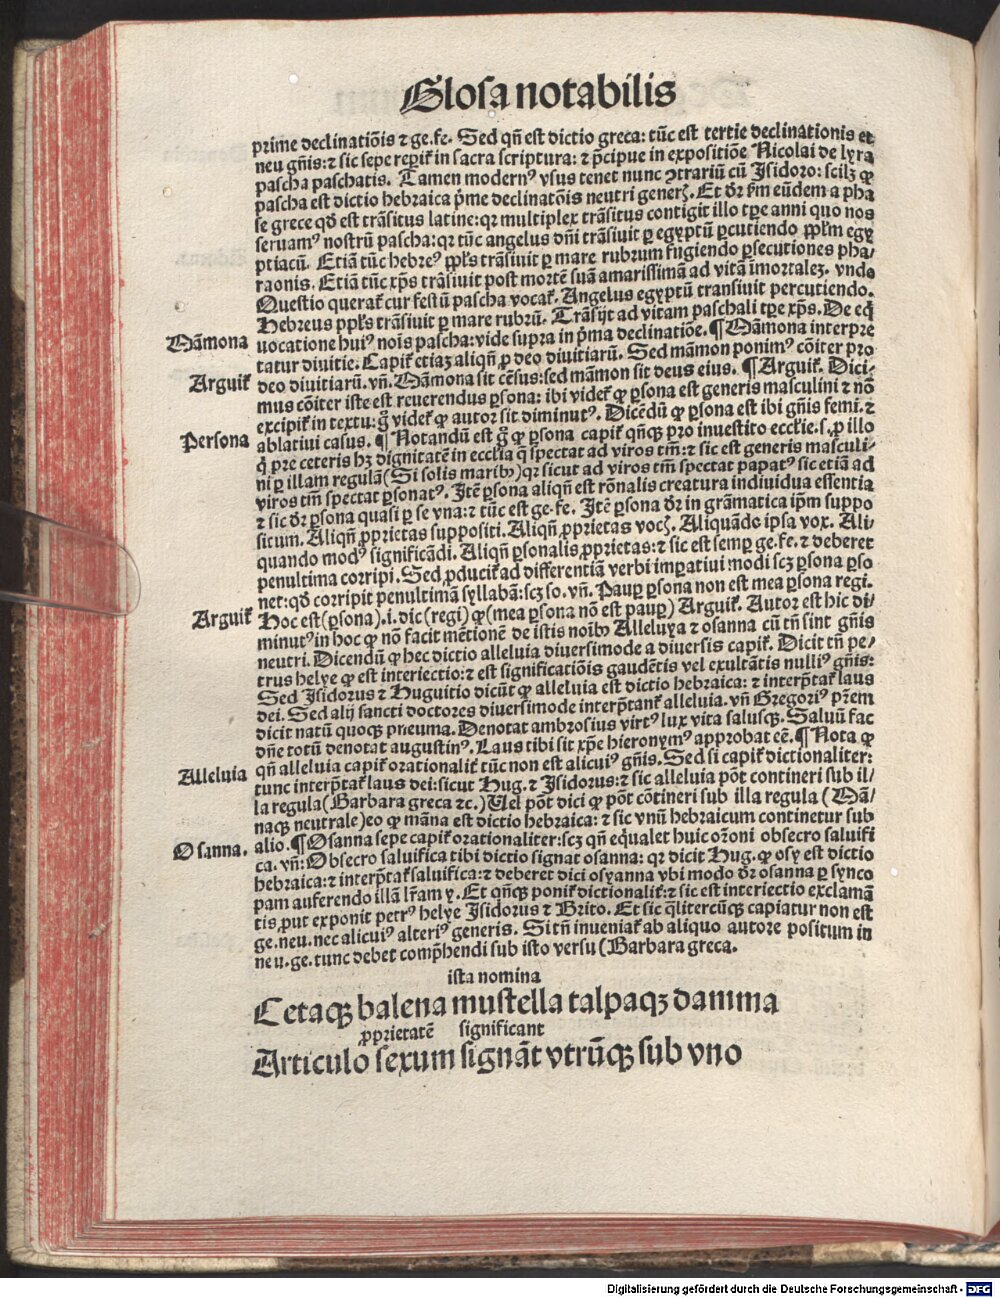 Glosa notabilis
prime declinatiōis ⁊ ge. fe. Sed qn̄ est dictio greca: tūc est tertie declinationis et
neu gn̄is: ⁊ sic sepe reꝑit᷑ in sacra scriptura: ⁊ p̄cipue in expositiōe Nicolai de lyra
pascha paschatis. Tamen modernꝰ vsus tenet nunc ꝯtrariū cū Isidoro: scilꝫ ꝙ
pascha est dictio hebraica p̄me declinatōis neutri generꝭ. Et dr̄ ẜm eūdem a pha
se grece qd̄ est trāsitus latine: qꝛ multiplex trāsitus contigit illo tꝑe anni quo nos
seruamꝰ nostrū pascha: qꝛ tūc angelus dn̄i trāsiuit ꝑ egyptū ꝑcutiendo ꝓpl̄m egy
ptiacū. Etiā tūc hebreꝰ ꝓpl̄s trāsiuit ꝑ mare rubrum fugiendo ꝑsecutiones pha⸗
raonis. Etiā tūc xp̄s trāsiuit post mortē suā amarissimā ad vitā īmortaleꝫ. vnde
Questio querat᷑ cur festū pascha vocat᷑. Angelus egyptū transiuit percutiendo.
Hebreus ppl̄s trāsiuit ꝑ mare rubrū. Trāsijt ad vitam paschali tꝑe xp̄s. De eq̄
Māmona uocatione huiꝰ nois pascha: vide supra in p̄ma declinatiōe. ¶ Māmona interpre
tatur diuitie. Capit᷑ etiaꝫ aliqn̄ ꝓ deo diuitiarū. Sed māmon ponimꝰ cōiter pro
Arguit᷑ deo diuitiarū. vn̄. Māmona sit cēsus: sed māmon sit deus eius. ¶ Arguit᷑. Dici⸗
mus cōiter iste est reuerendus ꝑsona: ibi videt᷑ ꝙ ꝑsona est generis masculini ⁊ nō
excipit᷑ in textu: g̊ videt᷑ ꝙ autor sit diminutꝰ. Dicēdū ꝙ ꝑsona est ibi gn̄is femi. ⁊
Persona ablatiui casus. ¶ Notandū est g̊ ꝙ ꝑsona capit᷑ qn̄qꝫ pro inuestito eccl̄ie. s. ꝑ illo
q̄ pre ceteris hꝫ dignitatē in eccl̄ia q̄ spectat ad viros tm̄: ⁊ sic est generis masculi⸗
ni ꝑ illam regulā (Si solis maribꝰ) qꝛ sicut ad viros tm̄ spectat papatꝰ sic etiā ad
viros tm̄ spectat ꝑsonatꝰ. Itē ꝑsona aliqn̄ est rōnalis creatura indiuidua essentia
⁊ sic dr̄ ꝑsona quasi ꝑ se vna: ⁊ tūc est ge. fe. Itē ꝑsona dr̄ in grāmatica ip̄m suppo
situm. Aliqn̄ ꝓprietas suppositi. Aliqn̄ ꝓprietas vocꝭ. Aliquādo ipsa vox. Ali⸗
quando modꝰ significādi. Aliqn̄ ꝑsonalis ꝓprietas: ⁊ sic est semꝑ ge. fe. ⁊ deberet
penultima corripi. Sed ꝓducit᷑ ad differentiā verbi imꝑatiui modi scꝫ ꝑsona ꝑso
net: qd̄ corripit penultimā syllabā: scꝫ so. vn̄. Pauꝑ ꝑsona non est mea ꝑsona regi.
Arguit᷑ Hoc est (ꝑsona). i. dic (regi) ꝙ (mea ꝑsona nō est pauꝑ) Arguit᷑. Autor est hic di⸗
minutꝰ in hoc ꝙ nō facit mētionē de istis noībꝰ Alleluya ⁊ osanna cū tn̄ sint gn̄is
neutri. Dicendū ꝙ hec dictio alleluia diuersimode a diuersis capit᷑. Dicit tn̄ pe⸗
trus helye ꝙ est interiectio: ⁊ est significatiōis gaudētis vel exultātis nulliꝰ gn̄is:
Sed Isidorus ⁊ Huguitio dicūt ꝙ alleluia est dictio hebraica: ⁊ interp̄tat᷑ laus
dei. Sed alij sancti doctores diuersimode interp̄tant᷑ alleluia. vn̄ Gregoriꝰ pr̄em
dicit natū quoqꝫ pneuma. Denotat ambrosius virtꝰ lux vita salusqꝫ. Saluū fac
dn̄e totū denotat augustinꝰ. Laus tibi sit xp̄e hieronymꝰ approbat eē. ¶ Nota ꝙ
Alleluia qn̄ alleluia capit᷑ orationalit᷑ tūc non est alicuiꝰ gn̄is. Sed si capit᷑ dictionaliter:
tunc interp̄tat᷑ laus dei: sicut Hug. ⁊ Isidorus: ⁊ sic alleluia pōt contineri sub il⸗
la regula (Barbara greca ⁊c.) Uel pōt dici ꝙ pōt cōtineri sub illa regula (Mā⸗
naqꝫ neutrale) eo ꝙ māna est dictio hebraica: ⁊ sic vnū hebraicum continetur sub
Osanna. alio. ¶ Osanna sepe capit᷑ orationaliter: scꝫ qn̄ eq̄ualet huic or̄oni obsecro saluifi
ca. vn̄: Obsecro saluifica tibi dictio signat osanna: qꝛ dicit Hug. ꝙ osy est dictio
hebraica: ⁊ interp̄tat᷑ saluifica: ⁊ deberet dici osyanna vbi modo dr̄ osanna ꝑ synco
pam auferendo illā lr̄am y. Et qn̄qꝫ ponit᷑ dictionalit᷑: ⁊ sic est interiectio exclamā
tis ꝓut exponit petrꝰ helye Isidorus ⁊ Brito. Et sic q̄litercūqꝫ capiatur non est
ge. neu. nec alicuiꝰ alteriꝰ generis. Si tn̄ inueniat᷑ ab aliquo autore positum in
neu. ge. tunc debet comp̄hendi sub isto versu (Barbara greca.
ista nomina
Cetaqꝫ balena mustella talpaqꝫ damma
ꝓprietatē significant
Articulo sexum signāt vtrūqꝫ sub vno
Digitalisierung gefördert durch die Deutsche Forschungsgemeinschaft - DFG